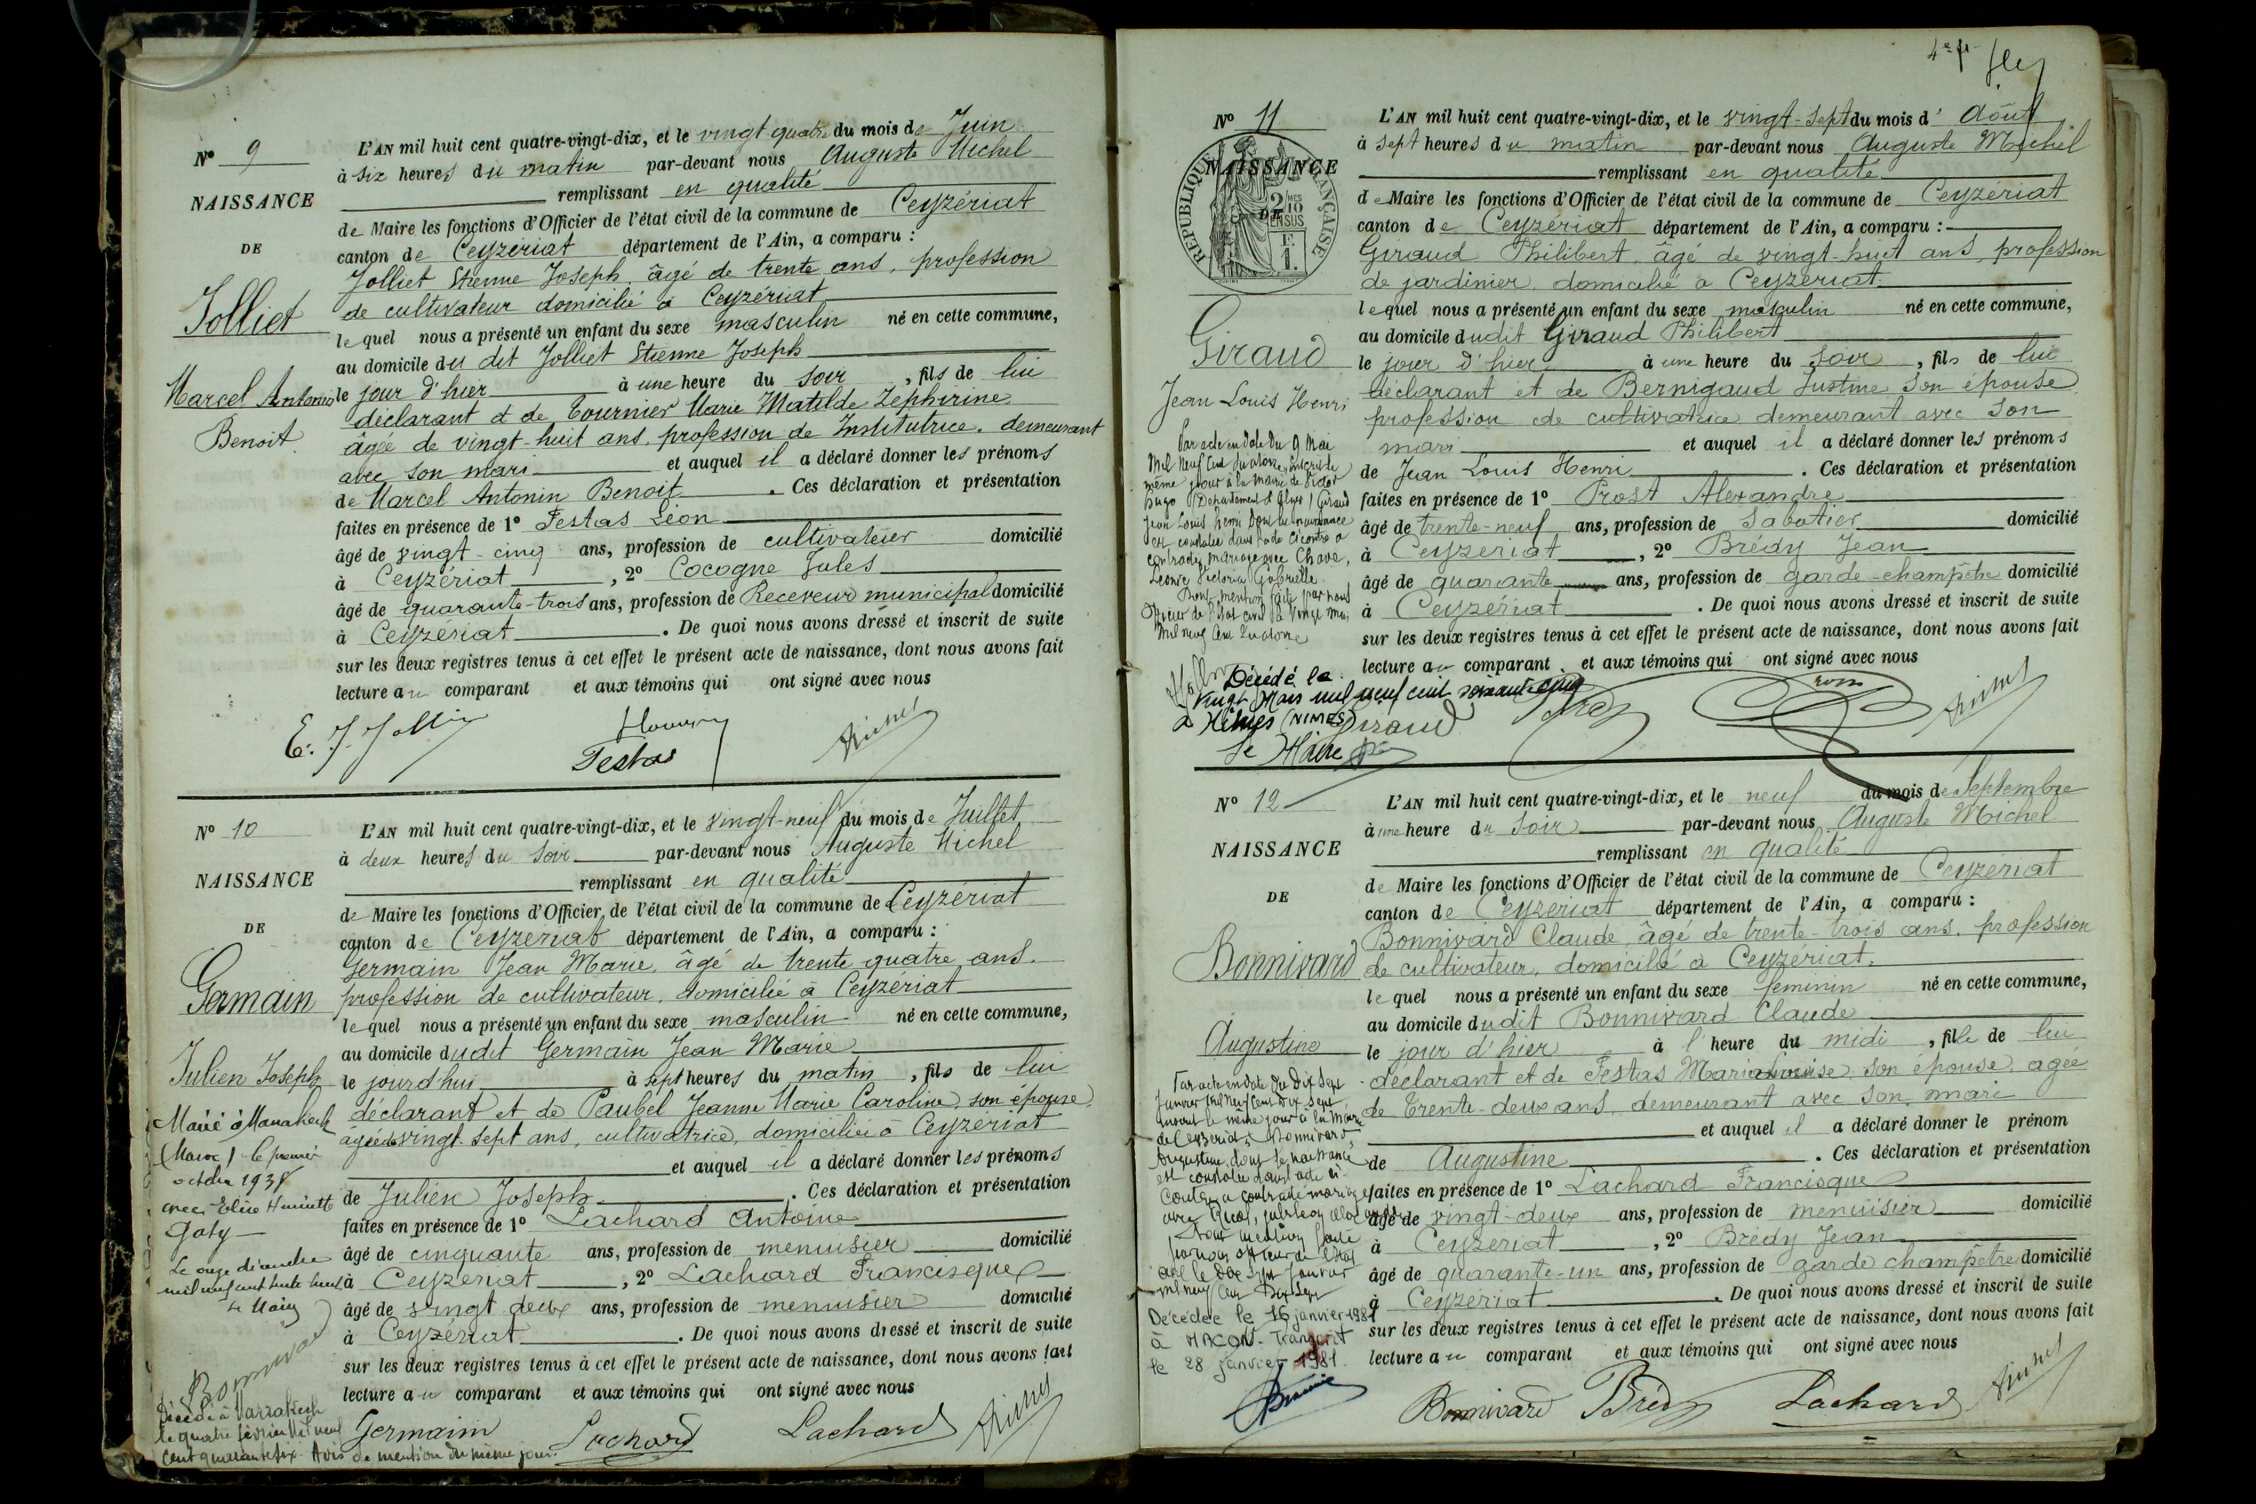 Nº 9
NAISSANCE
DE
Jolliet
Marcel Antonin
Benoit
L'AN mil huit cent quatre-vingt-dix, et le vingt quatre du mois de Juin
à six heures du matin par-devant nous Auguste Michel
remplissant en qualité
de Maire les fonctions d'Officier de l'état civil de la commune de Ceyzériat
canton de Ceyzériat département de l'Ain, a comparu :
Jolliet Etienne Joseph, âgé de trente ans, profession
de cultivateur domicilié à Ceyzériat
lequel nous a présenté un enfant du sexe masculin né en cette commune,
au domicile du dit Jolliet Etienne Joseph
le jour d'hier à une heure du soir, fils de lui
déclarant et de Tournier Marie Matilde Zéphirine
âgée de vingt-huit ans, profession de Institutrice. demeurant
avec son mari et auquel il a déclaré donner les prénoms
de Marcel Antonin Benoit. Ces déclaration et présentation
faites en présence de 1º Festas Léon
âgé de vingt-cinq ans, profession de cultivateur domicilié
à Ceyzériat, 2º Cocogne Jules
âgé de quarante-trois ans, profession de Receveur municipal domicilié
à Ceyzériat. De quoi nous avons dressé et inscrit de suite
sur les deux registres tenus à cet effet le présent acte de naissance, dont nous avons fait
lecture au comparant et aux témoins qui ont signé avec nous
E. J. Jolliet
Festas
Michel
Nº 10
NAISSANCE
DE
Germain
Julien Joseph
Marié à Marrakech
(Maroc) le premier
octobre 1938
avec Elise Henriette
Galy
Le onze décembre
mil neuf cent trente huit
Le Maire
Bonnivard
Décédé à Marrakech
le quatre février Mil neuf
cent quarante six. Avis de mention du même jour.
L'AN mil huit cent quatre-vingt-dix, et le vingt-neuf du mois de Juillet
à deux heures du soir par-devant nous Auguste Michel
remplissant en qualité
de Maire les fonctions d'Officier de l'état civil de la commune de Ceyzériat
canton de Ceyzériat département de l'Ain, a comparu :
Germain Jean Marie, âgé de trente quatre ans,
profession de cultivateur, domicilié à Ceyzériat
lequel nous a présenté un enfant du sexe masculin né en cette commune,
au domicile dudit Germain Jean Marie
le jourd'hui à sept heures du matin, fils de lui
déclarant et de Paubel Jeanne Marie Caroline, son épouse,
âgée de vingt-sept ans, cultivatrice, domiciliée à Ceyzériat
et auquel il a déclaré donner les prénoms
de Julien Joseph. Ces déclaration et présentation
faites en présence de 1º Lachard Antoine
âgé de cinquante ans, profession de menuisier domicilié
à Ceyzériat, 2º Lachard Francisque
âgé de vingt deux ans, profession de menuisier domicilié
à Ceyzériat. De quoi nous avons dressé et inscrit de suite
sur les deux registres tenus à cet effet le présent acte de naissance, dont nous avons fait
lecture au comparant et aux témoins qui ont signé avec nous
Germain Lachard Lachard Michel
4e ft
Nº 11
NAISSANCE
DE
RÉPUBLIQUE FRANÇAISE
2/10 MES
EN SUS
F
1.
Giraud
Jean Louis Henri
Par acte en date du 9 Mai
Mil neuf cent quatorze, inscrit le
même jour à la Mairie de Victor
Hugo (Département d'Alger) Giraud
Jean Louis Henri dont la naissance
est constatée dans l'acte ci-contre a
contracté mariage avec Chave,
Léonie Victoria Gabrielle
Dont mention faite par nous
Officier de l'état civil le vingt Mai
Mil neuf cent quatorze
Décédé le
vingt Mars mil neuf cent soixante cinq
à Nîmes (NIMES)
Le Maire
L'AN mil huit cent quatre-vingt-dix, et le vingt-sept du mois d'Août
à sept heures du matin par-devant nous Auguste Michel
remplissant en qualité
de Maire les fonctions d'Officier de l'état civil de la commune de Ceyzériat
canton de Ceyzériat département de l'Ain, a comparu :
Giraud Philibert, âgé de vingt-huit ans, profession
de jardinier, domicilié à Ceyzériat.
lequel nous a présenté un enfant du sexe masculin né en cette commune,
au domicile dudit Giraud Philibert
le jour d'hier à une heure du soir, fils de lui
déclarant et de Bernigaud Justine son épouse
profession de cultivatrice demeurant avec son
mari et auquel il a déclaré donner les prénoms
de Jean Louis Henri. Ces déclaration et présentation
faites en présence de 1º Prost Alexandre
âgé de trente-neuf ans, profession de Sabotier domicilié
à Ceyzériat, 2º Brédy Jean
âgé de quarante ans, profession de garde-champêtre domicilié
à Ceyzériat. De quoi nous avons dressé et inscrit de suite
sur les deux registres tenus à cet effet le présent acte de naissance, dont nous avons fait
lecture au comparant, et aux témoins qui ont signé avec nous
Giraud Brédy Michel
Nº 12
NAISSANCE
DE
Bonnivard
Augustine
Par acte en date du dix sept
Janvier Mil neuf cent dix sept
inscrit le même jour à la Mairie
de Ceyzériat, Bonnivard,
Augustine, dont la naissance
est constatée dans l'acte ci-
contre, a contracté mariage
avec
Dont mention faite
par nous officier de l'état
civil le dix sept Janvier
mil neuf cent dix sept
Décédée le 16 janvier 1981
à MACON. Transcrit
le 28 janvier 1981.
L'AN mil huit cent quatre-vingt-dix, et le neuf du mois de Septembre
à une heure du soir par-devant nous Auguste Michel
remplissant en qualité
de Maire les fonctions d'Officier de l'état civil de la commune de Ceyzériat
canton de Ceyzériat département de l'Ain, a comparu :
Bonnivard Claude, âgé de trente-trois ans, profession
de cultivateur, domicilié à Ceyzériat.
lequel nous a présenté un enfant du sexe féminin né en cette commune,
au domicile dudit Bonnivard Claude
le jour d'hier à l'heure du midi, fille de lui
déclarant et de Festas Marie Louise, son épouse, agée
de trente-deux ans, demeurant avec son mari
et auquel il a déclaré donner le prénom
de Augustine. Ces déclaration et présentation
faites en présence de 1º Lachard Francisque
âgé de vingt-deux ans, profession de menuisier domicilié
à Ceyzériat, 2º Brédy Jean
âgé de quarante-un ans, profession de garde champêtre domicilié
à Ceyzériat. De quoi nous avons dressé et inscrit de suite
sur les deux registres tenus à cet effet le présent acte de naissance, dont nous avons fait
lecture au comparant et aux témoins qui ont signé avec nous
Bonnivard Brédy Lachard Michel